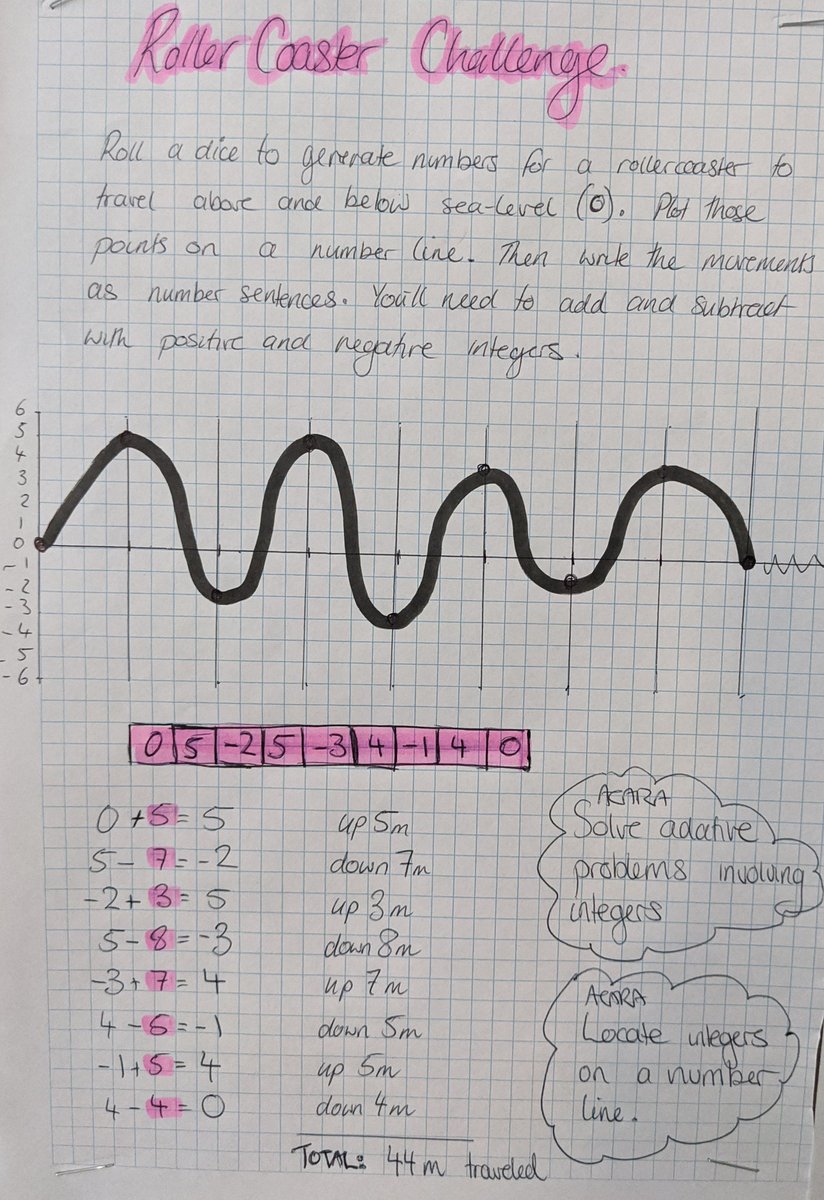 Roller Coaster Challenge.
Roll a dice to generate numbers for a rollercoaster to
travel above and below sea-level (0). Plot those
points on a number line. Then write the movements
as number sentences. You'll need to add and subtract
with positive and negative integers.
6
5
4
3
2
1
0
-1
-2
-3
-4
-5
-6
0 5 -2 5 -3 4 -1 4 0
0 + 5 = 5 up 5m
5 - 7 = -2 down 7m
-2 + 3 = 5 up 3m
5 - 8 = -3 down 8m
-3 + 7 = 4 up 7m
4 - 5 = -1 down 5m
-1 + 5 = 4 up 5m
4 - 4 = 0 down 4m
TOTAL: 44m traveled
ACARA
Solve adative
problems involving
integers
ACARA
Locate integers
on a number
line.